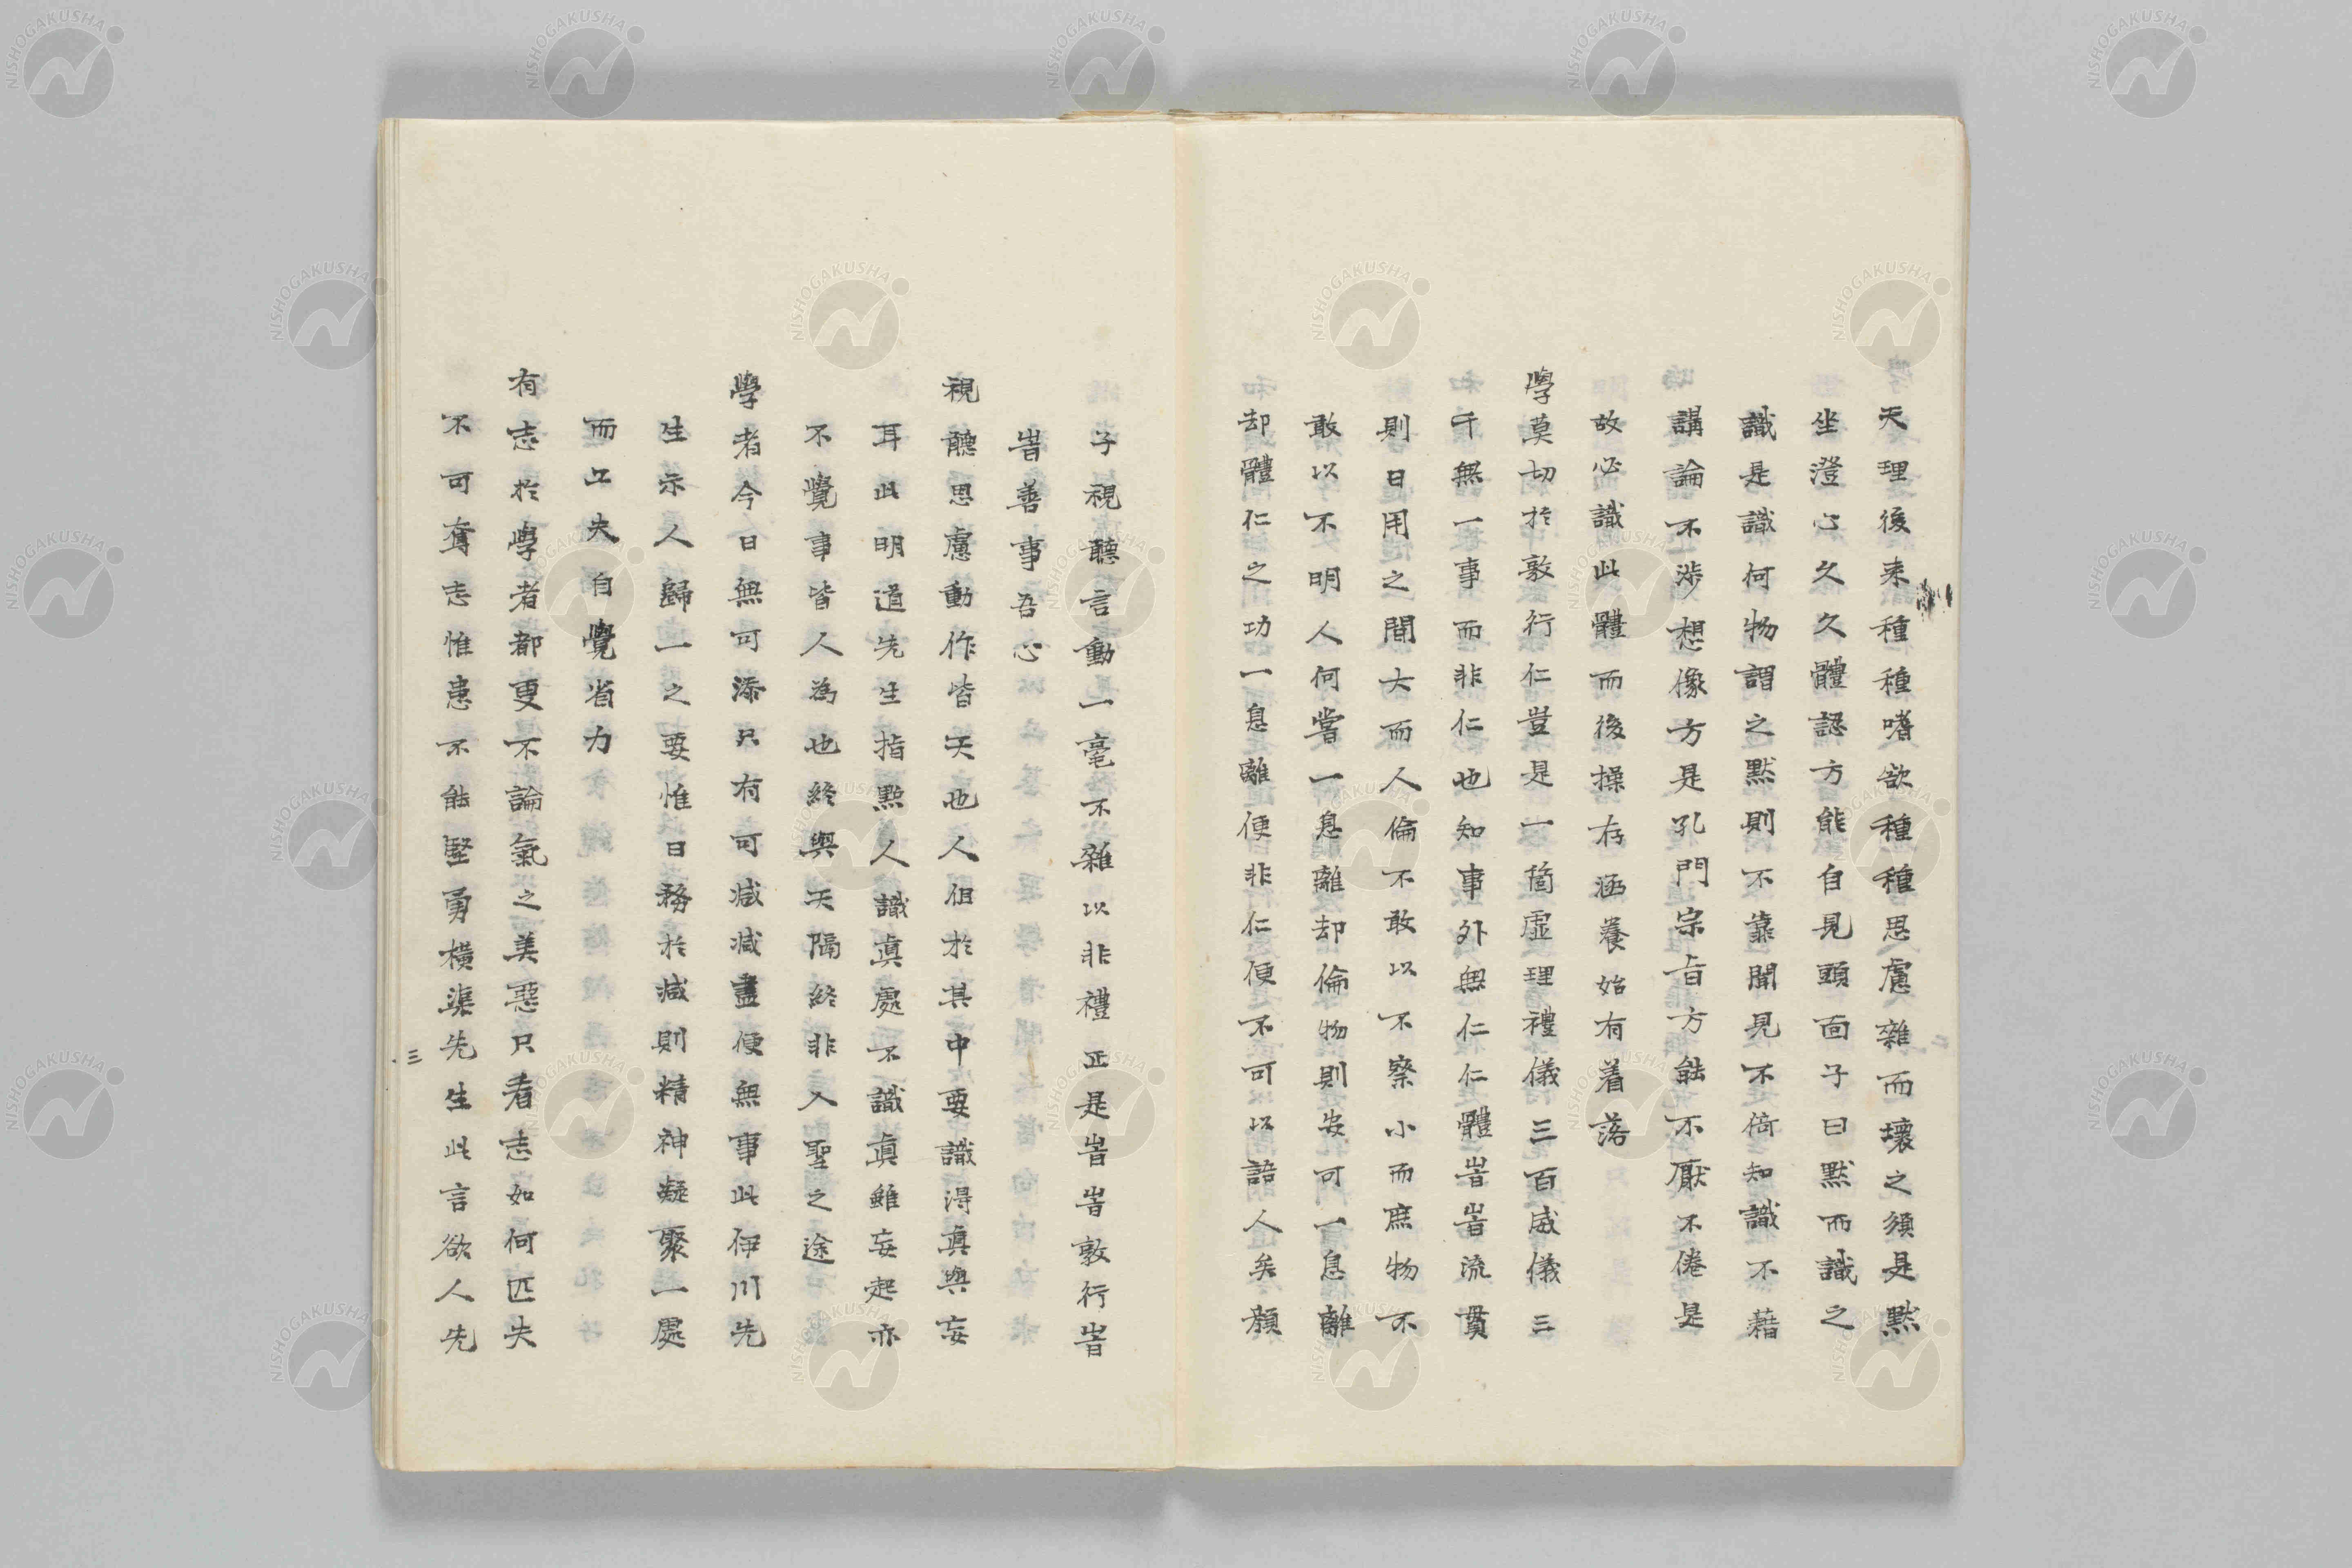 天理後来種種嗜欲種種思慮雜而壞之須是黙
坐澄心久久體認方能自見頭面子曰黙而識之
識是識何物謂之黙則不靠聞見不倚知識不藉
講論不涉想像方是孔門宗旨方能不厭不倦是
故必識此體而後操存涵養始有着落
學莫切於敦行仁豈是一箇虛理禮儀三百威儀三
千無一事而非仁也知事外無仁仁體旹旹流貫
則日用之間大而人倫不敢以不察小而庶物不
敢以不明人何嘗一息離却倫物則安可一息離
却體仁之功一息離便非仁便不可以語人矣顏
子視聽言動一毫不雜以非禮正是旹旹敦行旹
旹善事吾心
視聽思慮動作皆天也人但於其中要識得眞與妄
耳此明道先生指點人識眞處不識眞雖妄起亦
不覺事皆人為也終與天隔終非入聖之途
學者今日無可添只有可減減盡便無事此伊川先
生示人歸一之要惟日務於減則精神凝聚一處
而工夫自覺省力
有志於學者都更不論氣之美惡只看志如何匹夫
不可奪志惟患不能堅勇橫渠先生此言欲人先
三
NISHOGAKUSHA